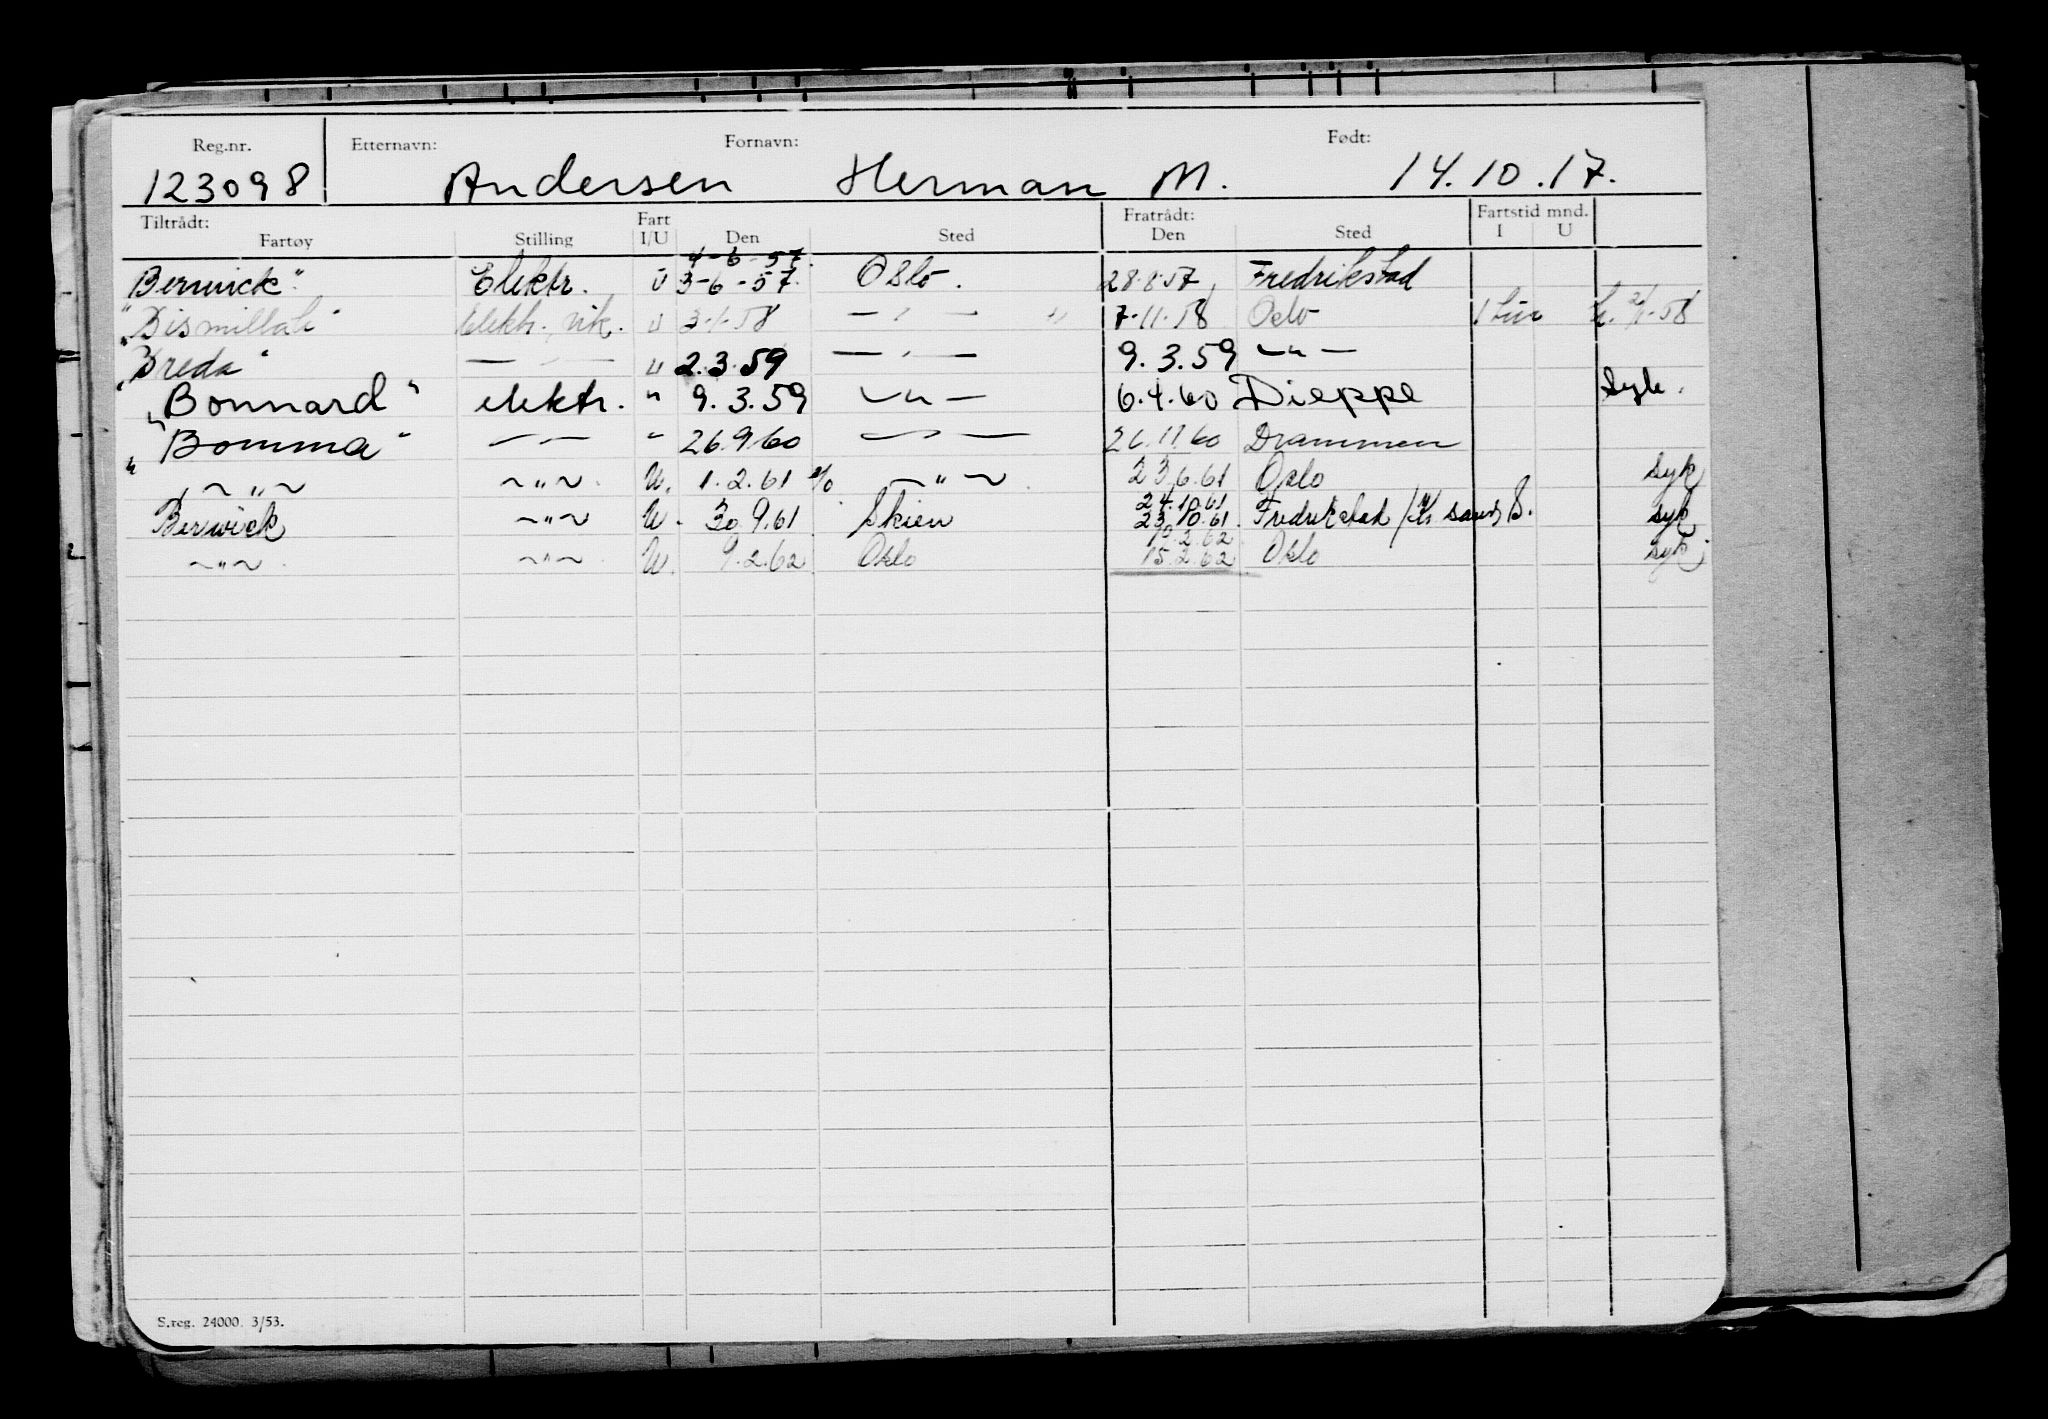 Reg.nr. Etternavn: Fornavn: Født:
123098 Andersen Herman M. 14.10.17.
Tiltrådt: Fart Fratrådt: Fartstid mnd.
Fartøy Stilling I/U Den Sted Den Sted I U
4-6-57.
Berwick" Elektr. U 3-6-57. Oslo. 28.8.57, Fredrikstad
"Bismillah" elektr. vik. u 3-1-58 — " — 7.11.58 Oslo 1 tur
"Breda" — " — u 2.3.59 — " — 9.3.59 — " —
"Bonnard" elektr. " 9.3.59 — " — 6.4.60 Dieppe Syk.
"Bomma" — " — " 26.9.60 — " — 26.11.60 Drammen
~ " ~ ~ " ~ U. 1.2.61 ~ " ~ 23.6.61 Oslo syk
24.10.61
Berwick ~ " ~ U. 30.9.61 Skien 23.10.61. Fredrikstad syk
19.2.62
~ " ~ ~ " ~ U. 9.2.62 Oslo 15.2.62 Oslo syk
S.reg. 24000. 3/53.